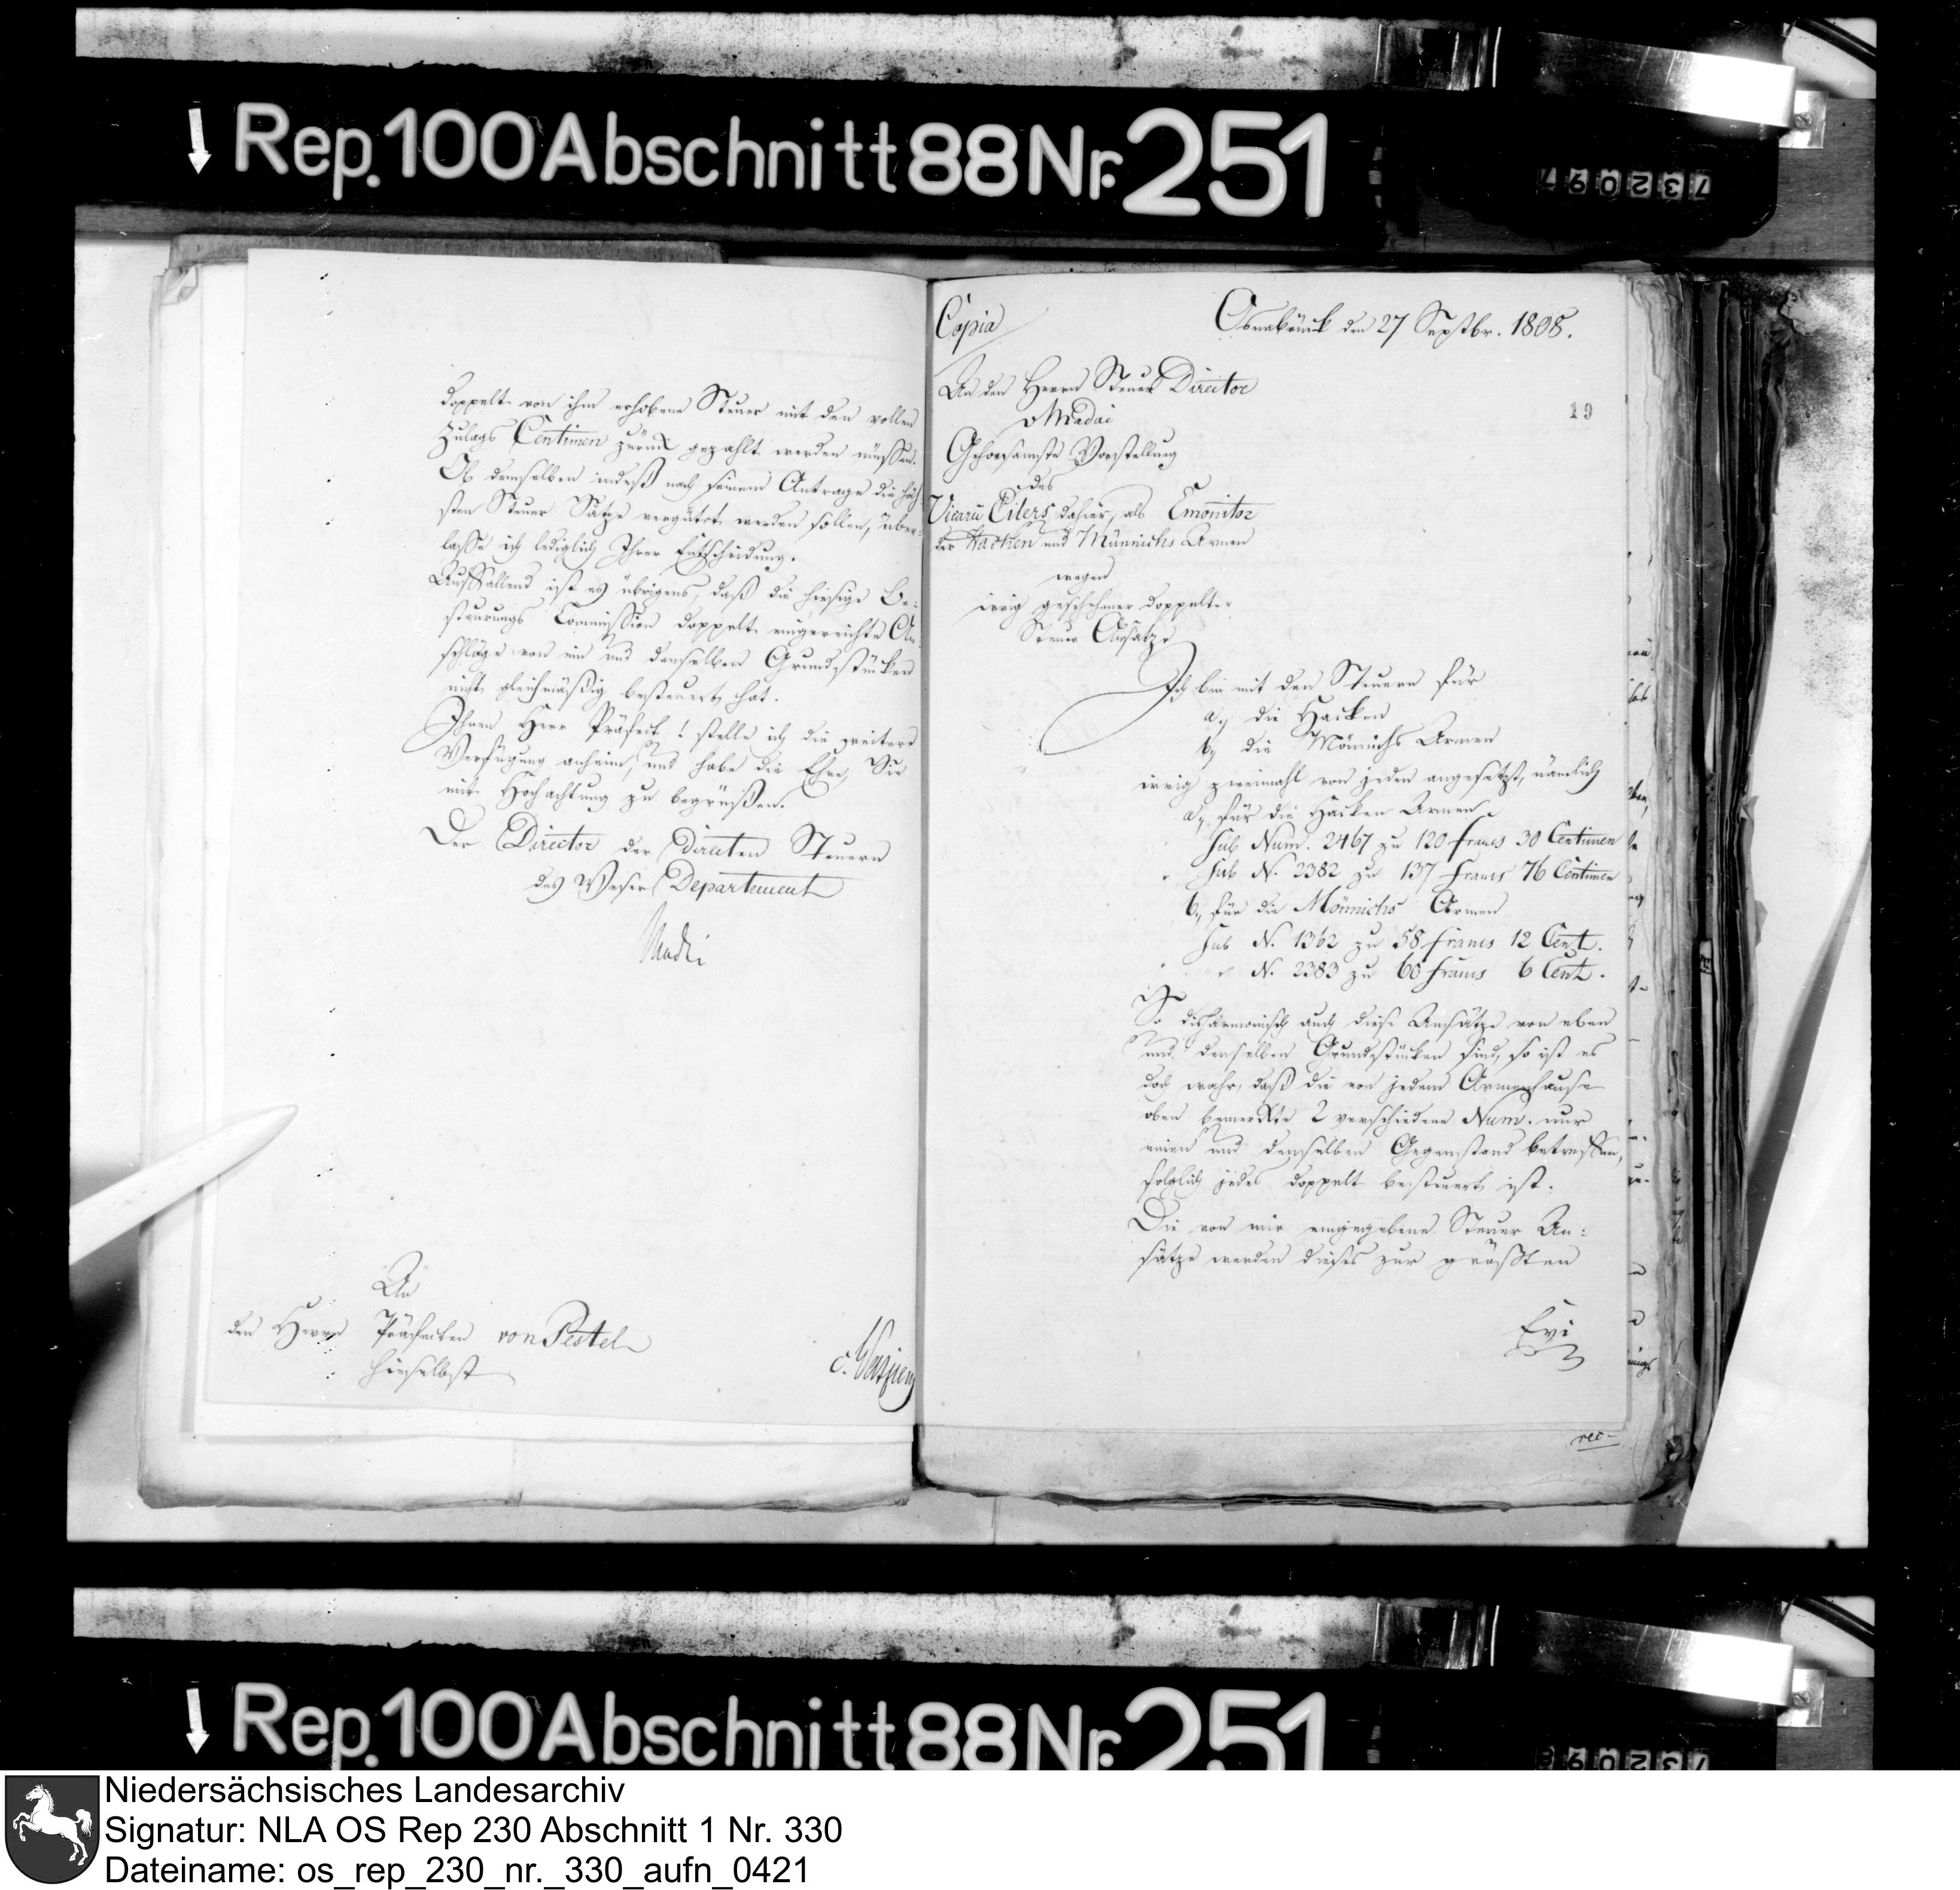 Rep. 100 Abschnitt 88 Nr. 251
732097
doppelt von ihm erhobene Steuer mit den vollen
Zulags Centimen zurück gezahlt werden müssen.
Ob demselben indeß nach seinem Antrage die höch-
sten Steuer Sätze vergütet werden sollen, über-
lasse ich lediglich Ihrer Entscheidung.
Auffallend ist es übrigens, daß die hiesige Be-
steurungs Commission doppelt eingereichte An-
schläge von ein und denselben Grundstücken
nicht gleichmäßig besteuert hat.
Ihnen Herr Präfect! stelle ich die weitere
Verfügung anheim, und habe die Ehre, Sie
mit Hochachtung zu begrüßen.
Der Director der directen Steuern
des Weser Departement
Madai
An
den Herrn Präfecten von Pestel
hieselbst
Copia
Osnabrück den 27 Septbr. 1808.
19
An den Herrn Steuer Director
v Madai
Gehorsamste Vorstellung
des
Vicarii Eilers dahier, als Emonitor
der Hacken und Münnichs Armen
wegen
irrig geschehener doppelter
Steuer Ansätze
Ich bin mit den Steuern für
a, die Hacken
b, die Mönnichs Armen
irrig zweimahl von jeden angesetzt, nämlich
a, für die Hacken Armen
sub Num. 2467 zu 120 francs 30 Centimen
sub N. 2382 zu 137 francs 76 Centimen
b, für die Mönnichs Armen
sub N. 1362 zu 58 francs 12 Cent.
" N. 2383 zu 60 francs 6 Cent.
So disharmonisch auch diese Ansätze von eben
und denselben Grundstücken sind, so ist es
doch wahr, daß die von jedem Armenhause
oben bemerkte 2 verschiedene Num. nur
einen und denselben Gegenstand betreffen,
folglich jedes doppelt besteuert ist.
Die von mir eingegebene Steuer An-
sätze werden dieses zur größten
Evi
Rep. 100 Abschnitt 88 Nr. 251
Niedersächsisches Landesarchiv
Signatur: NLA OS Rep 230 Abschnitt 1 Nr. 330
Dateiname: os_rep_230_nr._330_aufn_0421